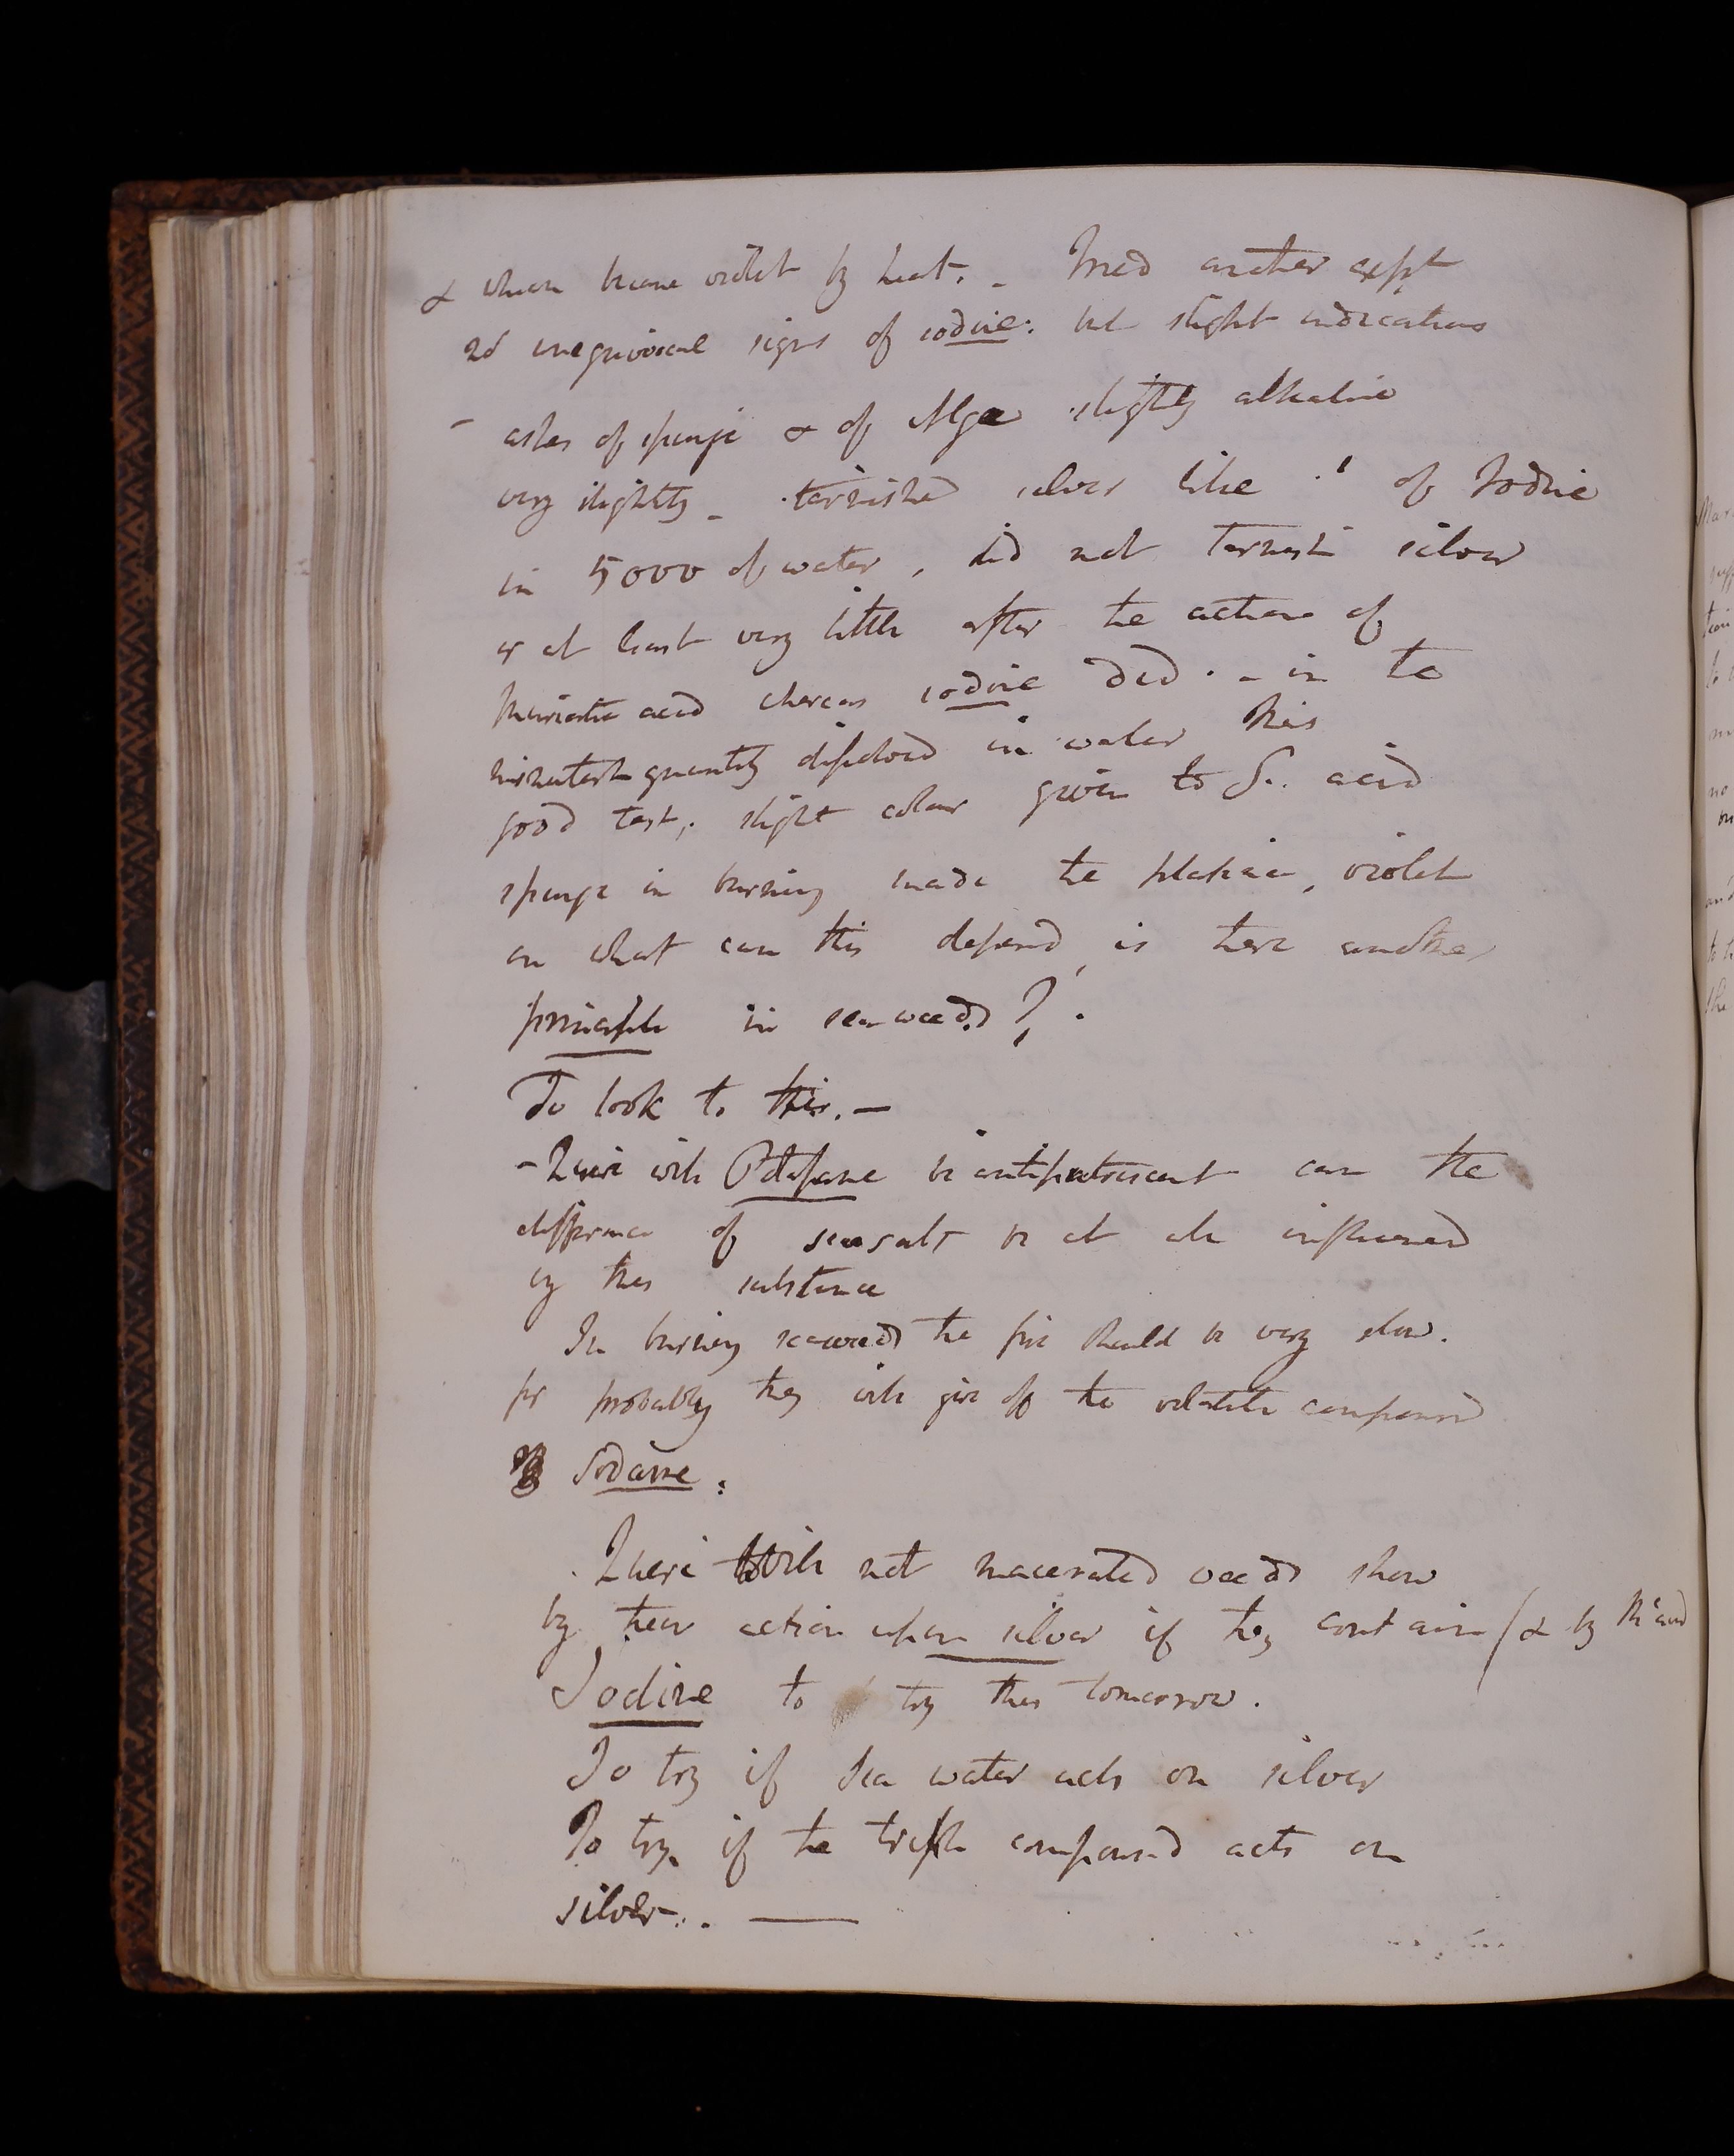 & when became violet by heat. _ Tried another expt
no unequivocal signs of iodine: but slight indications
- ashes of spunge & of Algae slightly alkaline
very slightly _ tarnished silver like 1 of Iodine
in 5000 of water, did not tarnish silver
or at least very little after the action of
Muriatic acid whereas iodine did. - in the
minutest quantity dissolved in water this
good test; slight colour given to S. acid
spunge in burning made the platina, violet
on what can this depend, is there another
principle in sea weeds?.
To look to this. —
- Quere will Potasane be antiputrescent can the
difference of sea salt be at all influenced
by this substance
In burning seaweed the fire should be very slow.
for probably they will give off the volatile compound
Sodane.
Quere Will not macerated weeds show
by their action upon silver if they contain (& by M acid
Iodine to try this tomorrow.
To try if Sea water acts on silver
To try if the triple compound acts on
silver.. —